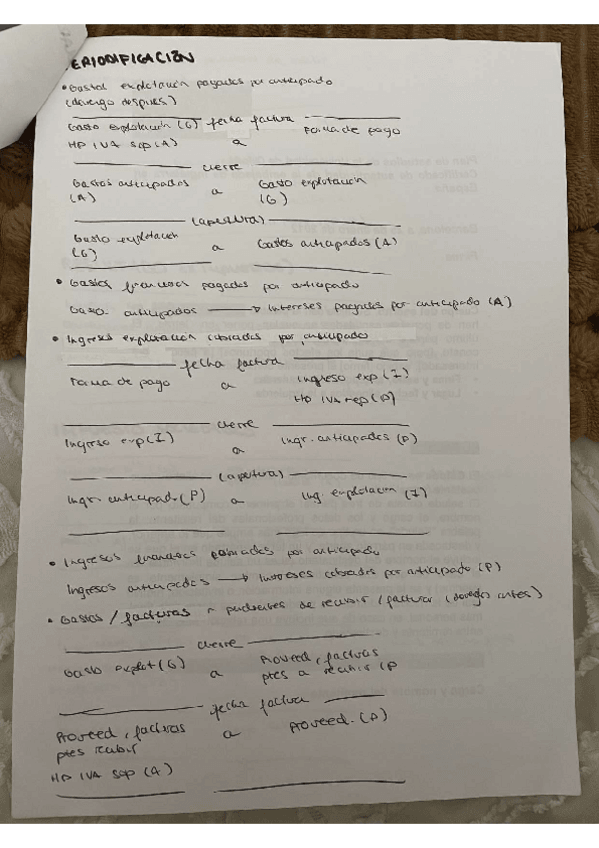 ERIODIFICACIÓN
• Gastos explotación pagados por anticipado
(devengo después)
fecha factura
Gasto explotación (G) a Forma de pago
HP IVA Sop (A)
cierre
Gastos anticipados (A) a Gasto explotación (G)
(apertura)
Gasto explotación (G) a Gastos anticipados (A)
• Gastos financieros pagados por anticipado
Gasto anticipados → Intereses pagados por anticipado (A)
• Ingresos explotación cobrados por anticipado
fecha factura
Forma de pago a Ingreso exp (I)
HP IVA rep (P)
cierre
Ingreso exp (I) a Ingr. anticipados (P)
(apertura)
Ingr. anticipado (P) a Ing explotación (I)
• Ingresos financieros cobrados por anticipado
Ingresos anticipados → Intereses cobrados por anticipado (P)
• Gastos / facturas pendientes de recibir / facturar (devengo antes)
cierre
Gasto explot (G) a Proveed, facturas
ptes a recibir (P
fecha factura
Proveed, facturas a Proveed. (P)
ptes recibir
HP IVA Sop (A)